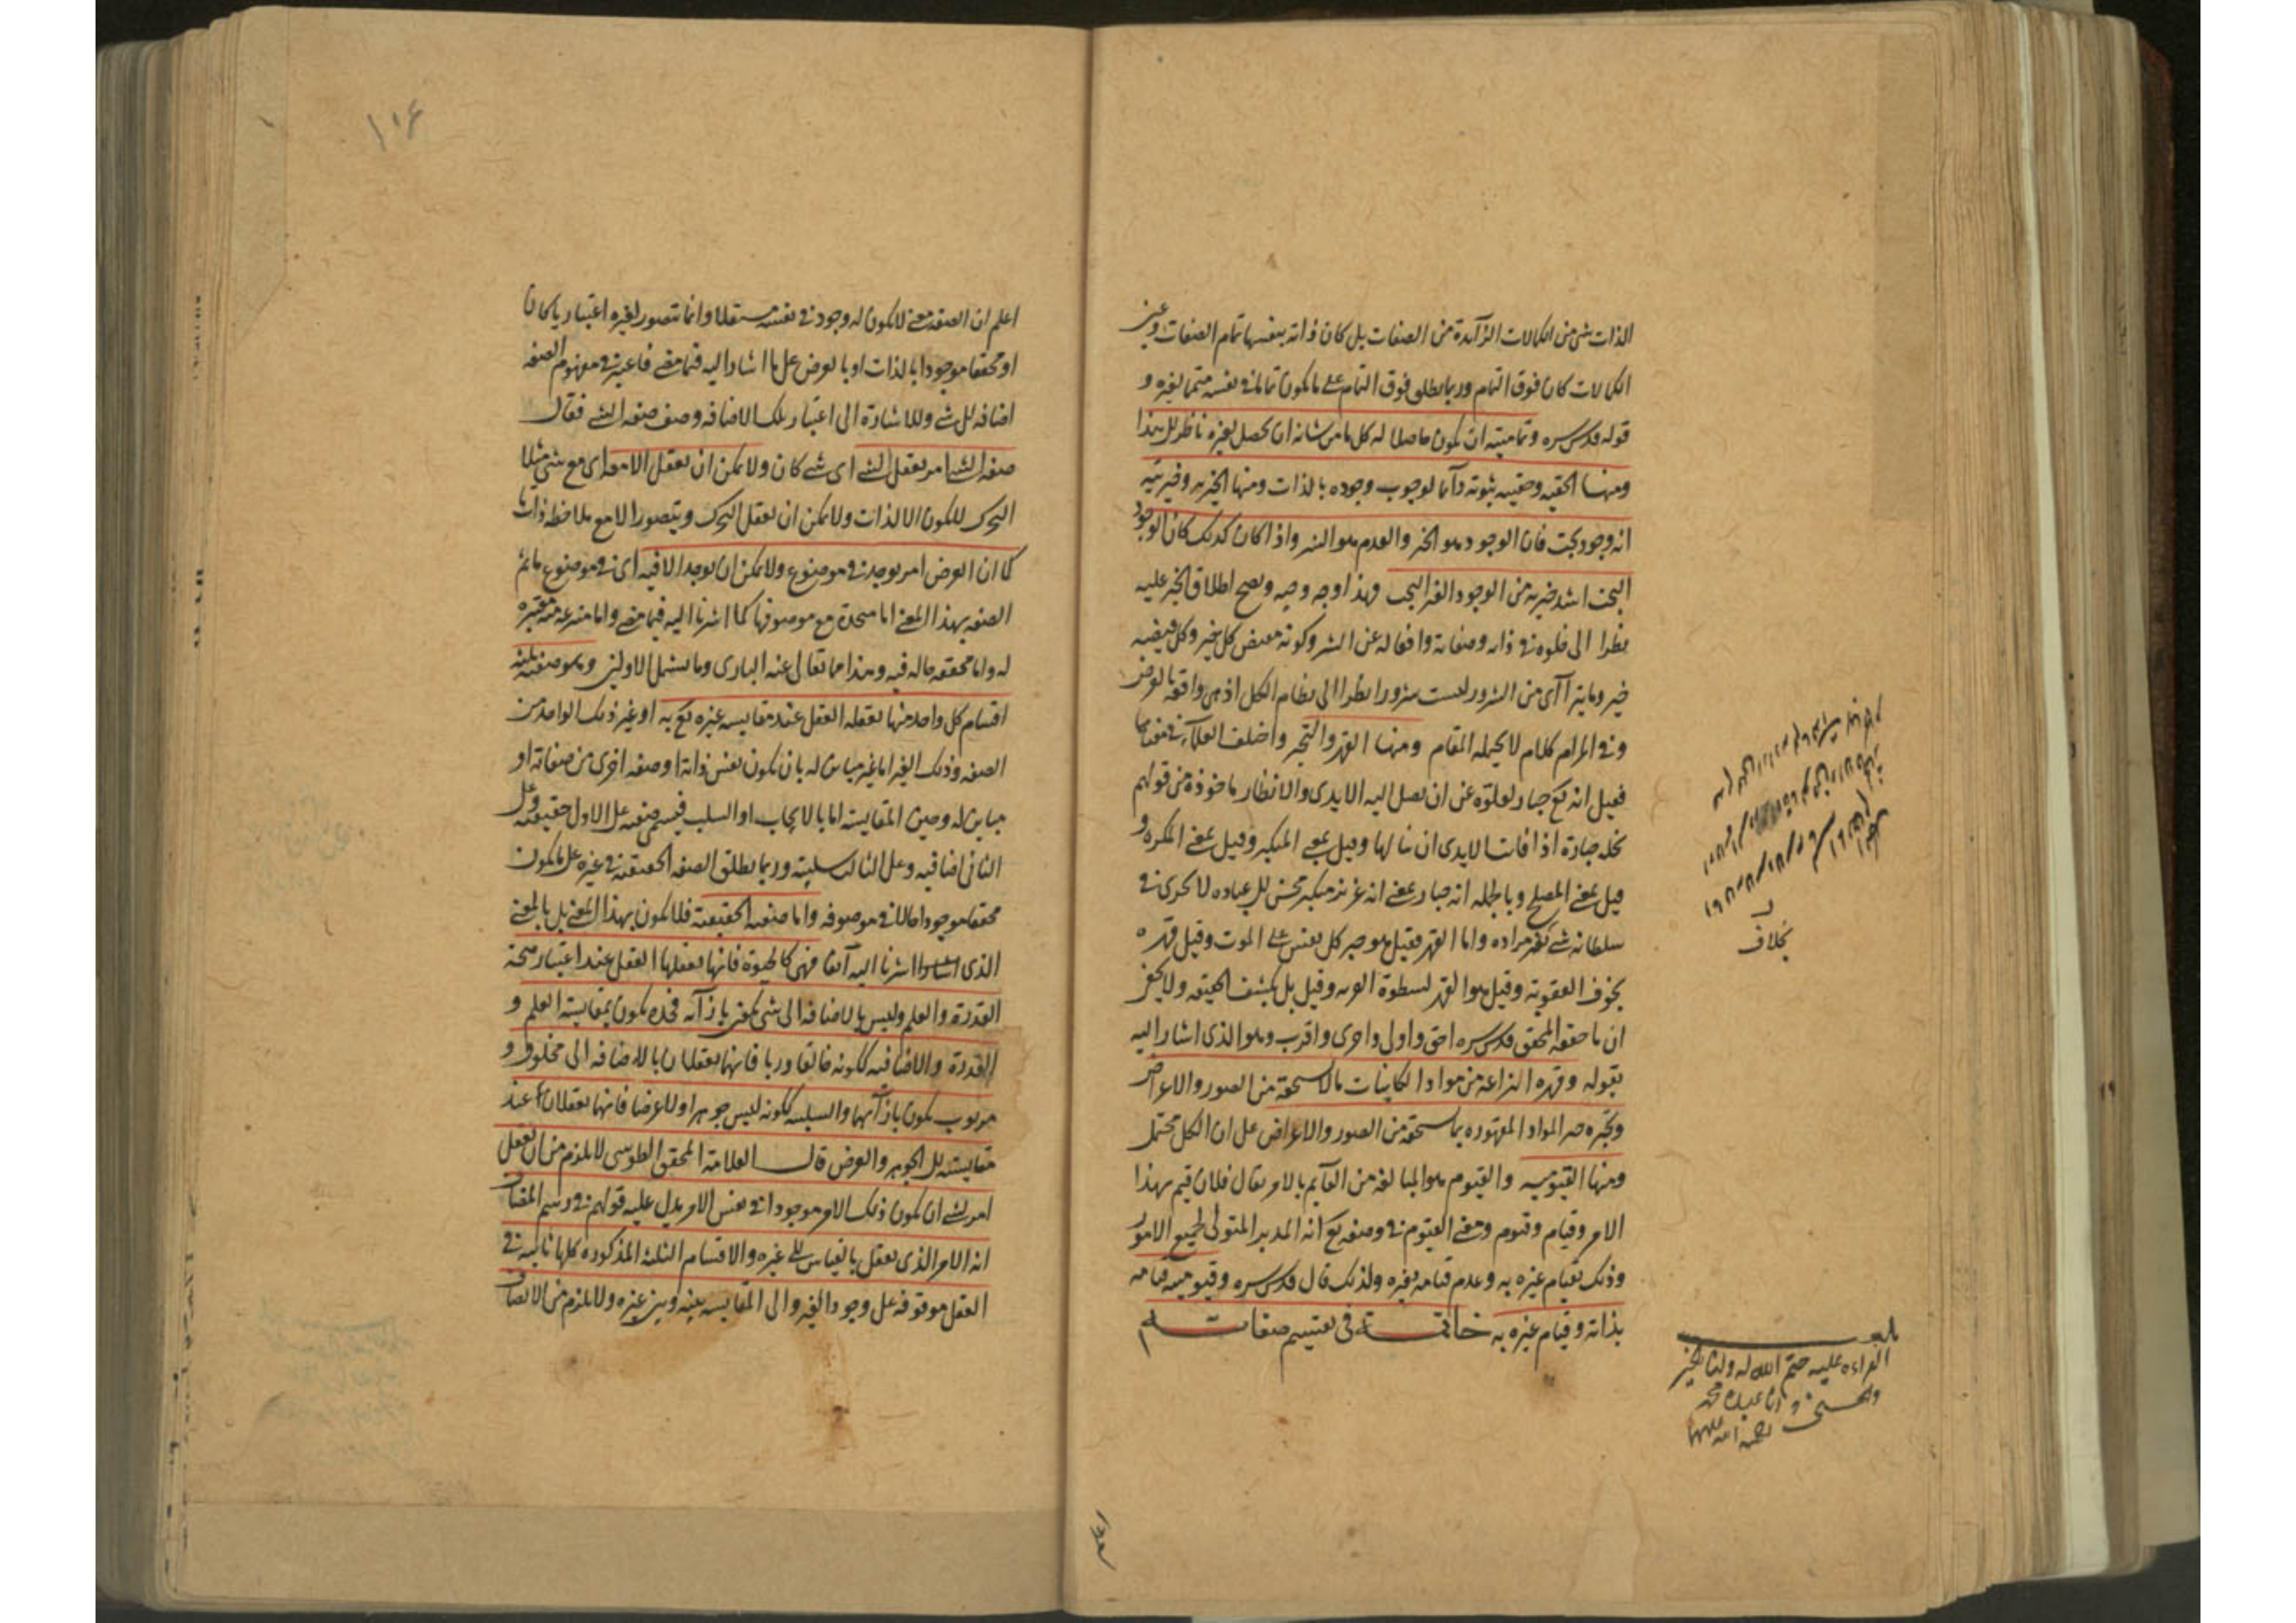 الذات شئ من الكمالات الزآيدة من الصفات بل كان ذاته بنفسها تمام الصفات وعين
الكمالات كان فوق التمام وربما يطلق فوق التمام على ما يكون تماما فى نفسه متمما لغيره و
قوله قدس سره وتماميته ان يكون حاصلا له كل ما من شانه ان يحصل لغيره ناظر الى هذا
ومنها الحقية وحقيته ثبوته دآئما لوجوب وجوده بالذات ومنها الخيرية وخيريته
انه وجود بحت فان الوجود هو الخير والعدم هو الشر واذا كان كذلك كان الوجود
البحت اشد خيرية من الوجود الغير البحت وهذا وجه وجيه ويصح اطلاق الخير عليه
نظرا الى خلوه فى ذاته وصفاته وافعاله عن الشر وكونه مفيض كل خير وكل فيضه
خير وما يترآآى من الشرور ليست شرورا نظرا الى نظام الكل اذ هى واقعة بالعرض
وفى المرام كلام لا يحيله المقام ومنها القهر والتجبر واختلف العلمآء فى معناها
فقيل انه تع جبار لعلوه عن ان يصل اليه الايدى والانظار ماخوذة من قولهم
نخلة جبارة اذا فات الايدى ان تنالها وقيل بمعنى المتكبر وقيل بمعنى المكره و
قيل بمعنى المصلح وبالجملة انه جبار بمعنى انه عزيز متكبر محسن الى عباده لا يجرى فى
سلطانه شئ بغير مراده واما القهر فقيل هو جبر كل نفس على الموت وقيل قهره
بخوف العقوبة وقيل هو القهر لسطوة القربة وقيل بل بكشف الحقيقة ولا يخفى
ان ما حققه المحقق قدس سره احق واولى واحرى واقرب وهو الذى اشار اليه
بقوله وقهره انتزاعه من مواد الكاينات ما لا تستحقه من الصور والاعراض
وتجبره جبر المواد المقهوره بما تستحقه من الصور والاعراض على ان الكل محتمل
ومنها القيومية والقيوم هو المبالغة من القآيم بالامر يقال فلان قيم بهذا
الامر وقيام وقيوم ومعنى القيوم فى وصفه تع انه المدبر المتولى لجميع الامور
وذلك بقيام غيره به وعدم قيامه بغيره ولذلك قال قدس سره وقيوميته قيامه
بذاته وقيام غيره به خاتمة فى تقسيم صفاته
بخلاف
بلغ
القراءة عليه ختم الله له ولنا بالخير
والحسنى
١٠٦
اعلم ان الصفة معنى لا يكون له وجود فى نفسه مستقلا وانما تتصور لغيره اعتباريا كان
او محققا موجودا بالذات او بالعرض على ما اشار اليه فيما مضى فاعتبر فى مفهوم الصفة
اضافة الى شئ وللاشارة الى اعتبار تلك الاضافة وصف صفة الشئ فقال
صفة الشئ امر يعقل لشئ اى شئ كان ولا يمكن ان يعقل الا معه اى مع شئ مثلا
التحرك لا يكون الا لذات ولا يمكن ان يعقل التحرك ويتصور الا مع ملاحظة ذات
كما ان العرض امر يوجد فى موضوع ولا يمكن ان يوجد الا فيه اى فى موضوع ما ثم
الصفة بهذا المعنى اما متحدة مع موصوفها كما اشرنا اليه فيما مضى واما منتزعة منه معتبرة
له واما محققة حالة فيه وهذا مما تعالى عنه البارى وما يشمل الاولين وهو صفته ثلثة
اقسام كل واحد منها يعقله العقل عند مقايسة غيره تع به او غير ذلك الواحد من
الصفة وذلك الغير اما غير مباين له بان يكون نفس ذاته او صفة اخرى من صفاته او
مباين له وحين المقايسة اما بالايجاب او السلب فيسمى صفته على الاول حقيقية وعلى
الثانى اضافية وعلى الثالث سلبية وربما يطلق الصفة الحقيقية فى غيره على ما يكون
محققا موجودا حالا فى موصوفه واما صفته الحقيقية فلا يكون بهذا المعنى بل بالمعنى
الذى اشرنا اليه آنفا فهى كالحيوة فانها يعقلها العقل عند اعتبار صحة
القدرة والعلم وليس بالاضافة الى شئ يكون بازآئه فحده يكون بمقايسة العلم و
القدرة والاضافية ككونه خالقا وربا فانهما يعقلان بالاضافة الى مخلوق و
مربوب يكون بازآئهما والسلبية ككونه ليس جوهرا ولا عرضا فانهما يعقلان عند
مقايسته الى الجوهر والعرض قال العلامة المحقق الطوسى لا يلزم من ان يعقل
امر لشئ ان يكون ذلك الامر موجودا فى نفس الامر يدل عليه قولهم فى رسم المضاف
انه الامر الذى يعقل بالقياس الى غيره والاقسام الثلثة المذكورة كلها ثابتة فى
العقل موقوفة على وجود الغير والى المقايسة بينه وبين غيره ولا يلزم من الاتصاف